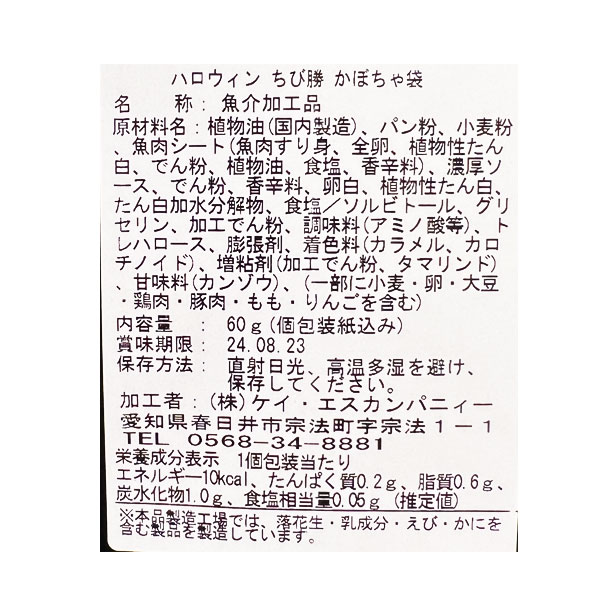 ハロウィン ちび勝 かぼちゃ袋
名　　称：魚介加工品
原材料名：植物油(国内製造)、パン粉、小麦粉
、魚肉シート(魚肉すり身、全卵、植物性たん
白、でん粉、植物油、食塩、香辛料)、濃厚ソ
ース、でん粉、香辛料、卵白、植物性たん白、
たん白加水分解物、食塩／ソルビトール、グリ
セリン、加工でん粉、調味料(アミノ酸等)、ト
レハロース、膨張剤、着色料(カラメル、カロ
チノイド)、増粘剤(加工でん粉、タマリンド)
、甘味料(カンゾウ)、(一部に小麦・卵・大豆
・鶏肉・豚肉・もも・りんごを含む)
内容量　： 60ｇ(個包装紙込み)
賞味期限： 24.08.23
保存方法： 直射日光、高温多湿を避け、
保存してください。
加工者：(株)ケイ・エスカンパニィー
愛知県春日井市宗法町字宗法１－１
TEL 0568-34-8881
栄養成分表示 1個包装当たり
エネルギー10kcal、たんぱく質0.2ｇ、脂質0.6ｇ、
炭水化物1.0ｇ、食塩相当量0.05ｇ (推定値)
※本品製造工場では、落花生・乳成分・えび・かにを
含む製品を製造しています。